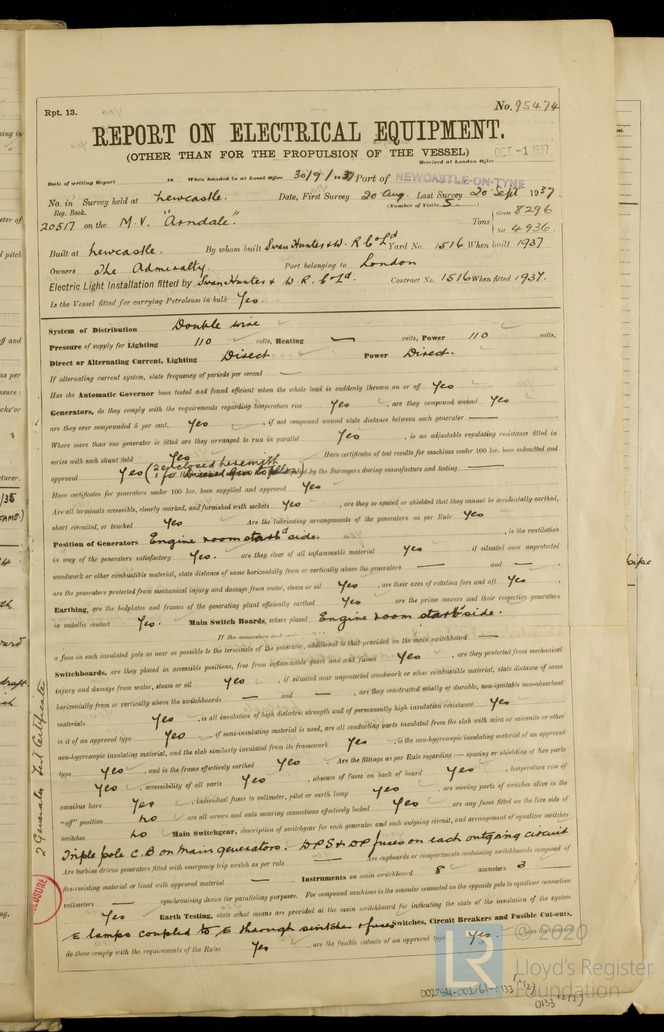 Rpt. 13.
No. 95474
REPORT ON ELECTRICAL EQUIPMENT.
(OTHER THAN FOR THE PROPULSION OF THE VESSEL)
Received at London Office OCT -1 1937
Date of writing Report 19 When handed in at Local Office 30/9/ 19 37 Port of NEWCASTLE-ON-TYNE
No. in Survey held at Newcastle. Date, First Survey 20 Aug. Last Survey 20 Sept 1937.
Reg. Book. (Number of Visits 5
20517 on the M.V. "Arndale". Tons Gross 8296 Net 4936
Built at Newcastle. By whom built Swan Hunter & W. R. Co Ld Yard No. 1516 When built 1937
Owners The Admiralty. Port belonging to London
Electric Light Installation fitted by Swan Hunter & W. R. Co Ld. Contract No. 1516 When fitted 1937.
Is the Vessel fitted for carrying Petroleum in bulk Yes.
System of Distribution Double wire
Pressure of supply for Lighting 110 volts, Heating — volts, Power 110 volts.
Direct or Alternating Current, Lighting Direct Power Direct.
If alternating current system, state frequency of periods per second —
Has the Automatic Governor been tested and found efficient when the whole load is suddenly thrown on or off Yes
Generators, do they comply with the requirements regarding temperature rise Yes, are they compound wound Yes
are they over compounded 5 per cent. Yes, if not compound wound state distance between each generator —
Where more than one generator is fitted are they arranged to run in parallel Yes, is an adjustable regulating resistance fitted in
series with each shunt field Yes Have certificates of test results for machines under 100 kw. been submitted and
approved Yes (2 enclosed herewith by the Surveyors during manufacture and testing —
Have certificates for generators under 100 kw. been supplied and approved Yes
Are all terminals accessible, clearly marked, and furnished with sockets Yes, are they so spaced or shielded that they cannot be accidentally earthed,
short circuited, or touched Yes Are the lubricating arrangements of the generators as per Rule Yes
Position of Generators Engine room starbd side. , is the ventilation
in way of the generators satisfactory Yes. are they clear of all inflammable material Yes if situated near unprotected
woodwork or other combustible material, state distance of same horizontally from or vertically above the generators — and —
are the generators protected from mechanical injury and damage from water, steam or oil Yes, are their axes of rotation fore and aft Yes
Earthing, are the bedplates and frames of the generating plant efficiently earthed Yes are the prime movers and their respective generators
in metallic contact Yes. Main Switch Boards, where placed Engine room starbd side.
If the generators and
a fuse on each insulated pole as near as possible to the terminals of the generator, additional to that provided on the main switchboard —
Switchboards, are they placed in accessible positions, free from inflammable gases and acid fumes Yes, are they protected from mechanical
injury and damage from water, steam or oil Yes, if situated near unprotected woodwork or other combustible material, state distance of same
horizontally from or vertically above the switchboards — and —, are they constructed wholly of durable, non-ignitable non-absorbent
materials Yes, is all insulation of high dielectric strength and of permanently high insulation resistance Yes
is it of an approved type Yes, if semi-insulating material is used, are all conducting parts insulated from the slab with mica or micanite or other
non-hygroscopic insulating material, and the slab similarly insulated from its framework Yes, is the non-hygroscopic insulating material of an approved
type Yes, and is the frame effectively earthed Yes Are the fittings as per Rule regarding:— spacing or shielding of live parts
Yes, accessibility of all parts Yes, absence of fuses on back of board Yes, temperature rise of
omnibus bars Yes, individual fuses to voltmeter, pilot or earth lamp Yes, are moving parts of switches alive in the
"off" position No are all screws and nuts securing connections effectively locked Yes are any fuses fitted on the live side of
switches No Main Switchgear, description of switchgear for each generator and each outgoing circuit, and arrangement of equaliser switches
Triple pole C.B on main generators. DPS & DP fuses on each outgoing circuit
Are turbine driven generators fitted with emergency trip switch as per rule — Are cupboards or compartments containing switchboards composed of
fire-resisting material or lined with approved material — Instruments on main switchboard 8 ammeters 3
voltmeters — synchronising device for paralleling purposes. For compound machines is the ammeter connected on the opposite pole to equaliser connection
Yes Earth Testing, state what means are provided at the main switchboard for indicating the state of the insulation of the system
E lamps coupled to E through switches & fuses Switches, Circuit Breakers and Fusible Cut-outs,
do these comply with the requirements of the Rules Yes are the fusible cutouts of an approved type Yes.
2 Generator Test Certificates
© 2020
LR
Lloyd's Register
Foundation
002754-002761-0133 (1/2)
0133 (2/2)